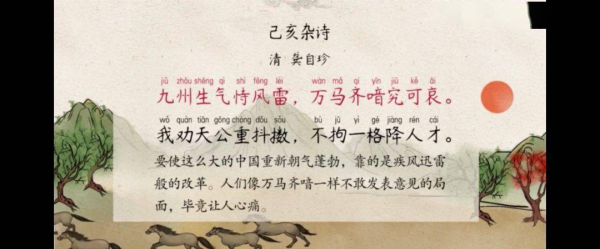 己亥杂诗
清 龚自珍
jiǔ zhōu shēng qì shì fēng léi wàn mǎ qí yīn jiū kě āi
九州生气恃风雷，万马齐喑究可哀。
wǒ quàn tiān gōng chóng dǒu sǒu bù jū yì gé jiàng rén cái
我劝天公重抖擞，不拘一格降人才。
要使这么大的中国重新朝气蓬勃，靠的是疾风迅雷
般的改革。人们像万马齐喑一样不敢发表意见的局
面，毕竟让人心痛。